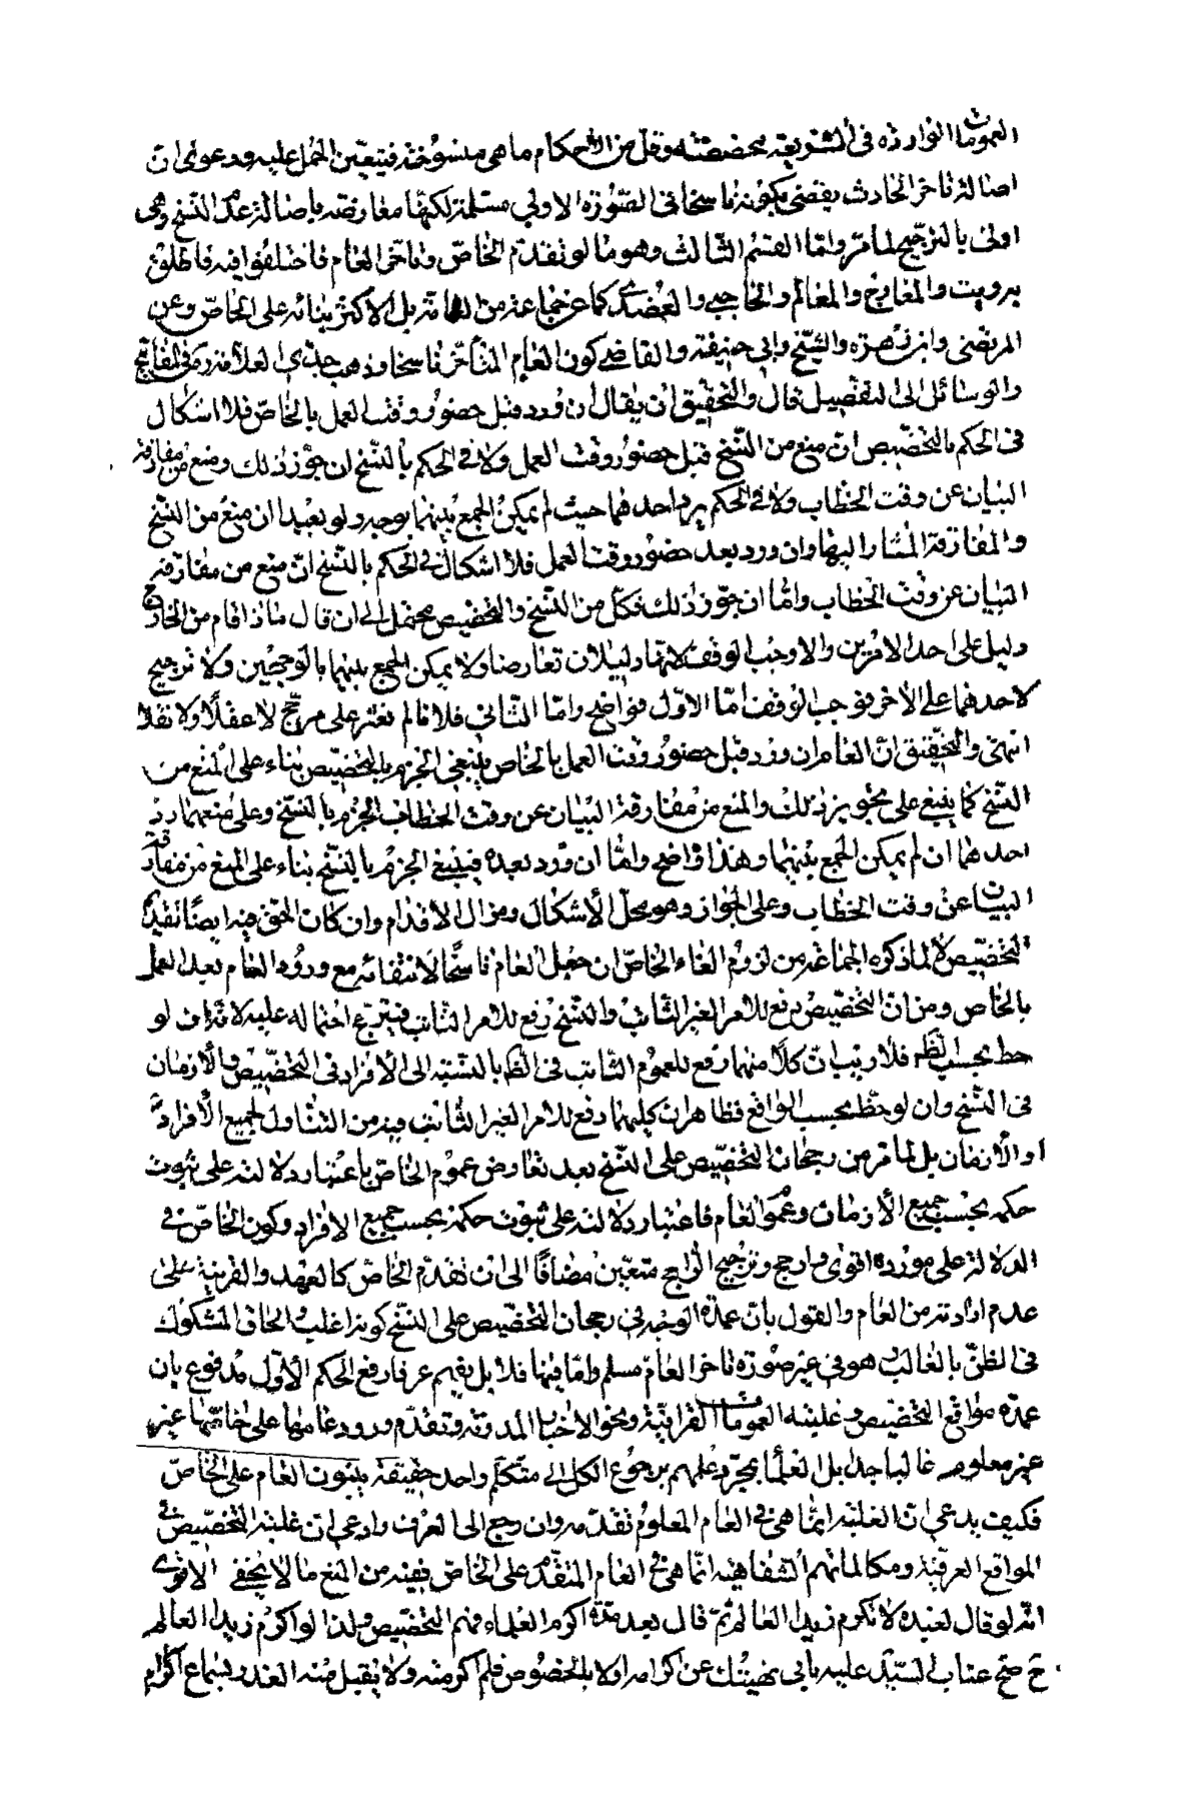 العمومات الواردة في الشريعة مخصصة وقل من الأحكام ما هي منسوخة فيتعين الحمل عليه ودعوى ان
اصالة تاخر الحادث يقضي بكونه ناسخا في الصورة الاولى مسلمة لكنها معارضة باصالة عدم النسخ وهي
اولى بالترجيح لما مر واما القسم الثالث وهو ما لو تقدم الخاص وتاخر العام فاختلفوا فيه فاطلق
والمعارج والمعالم والحاجبي والعضدي كما عن جماعة من العامة بل الأكثر بنائه على الخاص وعن
المرتضى وابن زهرة والشيخ وابي حنيفة والقاضي كون العام المتأخر ناسخا وذهب جدي العلامة في المفاتيح
والوسائل الى التفصيل قال والتحقيق ان يقال ان ورد قبل حضور وقت العمل بالخاص فلا اشكال
في الحكم بالتخصيص ان منع من النسخ قبل حضور وقت العمل ولا في الحكم بالنسخ ان جوز ذلك ومنع من مفارقة
البيان عن وقت الخطاب ولا في الحكم برد احدهما حيث لم يمكن الجمع بينهما بوجه ولو بعيد ان منع من النسخ
والمفارقة المشار اليها وان ورد بعد حضور وقت العمل فلا اشكال في الحكم بالنسخ ان منع من مفارقة
البيان عن وقت الخطاب واما ان جوز ذلك فكل من النسخ والتخصيص محتمل الى ان قال ماذا قام من الخارج
دليل على احد الامرين والا وجب الوقف لانهما دليلان تعارضا ولا يمكن الجمع بينهما بالوجهين ولا ترجيح
لاحدهما على الأخر فوجب الوقف اما الاول فواضح واما الثاني فلانا لم نعثر على مرجح لا عقلا ولا نقلا
انتهى والتحقيق ان العام ان ورد قبل حضور وقت العمل بالخاص ينبغي الجزم بالتخصيص بناء على المنع من
النسخ كما ينبغي على تجويز ذلك والمنع من مفارقة البيان عن وقت الخطاب الجزم بالنسخ وعلى منعهما رد
احدهما ان لم يمكن الجمع بينهما وهذا واضح واما ان ورد بعده فينبغي الجزم بالنسخ بناء على المنع من مفارقة
البيان عن وقت الخطاب وعلى الجواز وهو محل الأشكال ومزال الاقدام وان كان الحق فيه ايضا تقديم
التخصيص لا لما ذكره الجماعة من لزوم الغاء الخاص ان جعل العام ناسخا لانتفائه مع ورود العام بعد العمل
بالخاص ومن ان التخصيص رفع للامر الغير الثابت والنسخ رفع للامر الثابت فيترجح احتماله عليه لانه ان لو
حظ بحسب الظم فلا ريب ان كلا منهما رفع للعموم الثابت في الظم بالنسبة الى الافراد في التخصيص والأزمان
في النسخ وان لوحظ بحسب الواقع فظاهر ان كليهما دفع للامر الغير الثابت فيه من التناول لجميع الأفراد
او الأزمان بل لما مر من رجحان التخصيص على النسخ بعد تعارض عموم الخاص باعتبار دلالته على ثبوت
حكمه بحسب جميع الأزمان وعموم العام فاعتبار دلالته على ثبوت حكمه بحسب جميع الافراد وكون الخاص في
الدلالة على مورده اقوى وارجح وترجيح الراجح متعين مضافا الى ان تقدم الخاص كالعهد والقرينة على
عدم ارادته من العام والقول بان عمدة الوجه في رجحان التخصيص على النسخ كونه اغلب والحاق المشكوك
في الظن بالغالب وهو في غير صورة تاخر العام مسلم واما فيها فلا بل يفهم عرفا رفع الحكم الأول مدفوع بان
عمدة مواقع التخصيص وغلبته العمومات القرانية ونحو الاخبار المدونة وتقدم ورود عامها على خاصها غير
غير معلوم غالبا جدا بل العلماء بمجرد علمهم برجوع الكل الى متكلم واحد حقيقة يبنون العام على الخاص
فكيف يدعي ان الغلبة انما هي في العام المعلوم تقدمه وان رجع الى العرف وادعي ان غلبة التخصيص في
المواقع العرفية ومكالماتهم الشفاهية انما هي في العام المتقدم على الخاص ففيه من المنع ما لا يخفى الا ترى
انه لو قال لعبده لا تكرم زيدا العالم ثم قال بعد مدة اكرم العلماء فهم التخصيص ولذا لو اكرم زيدا العالم
ح صح عتاب السيد عليه بأني نهيتك عن اكرامه اولا بالخصوص فلم اكرمته ولا يقبل منه العذر بسماع اكرام